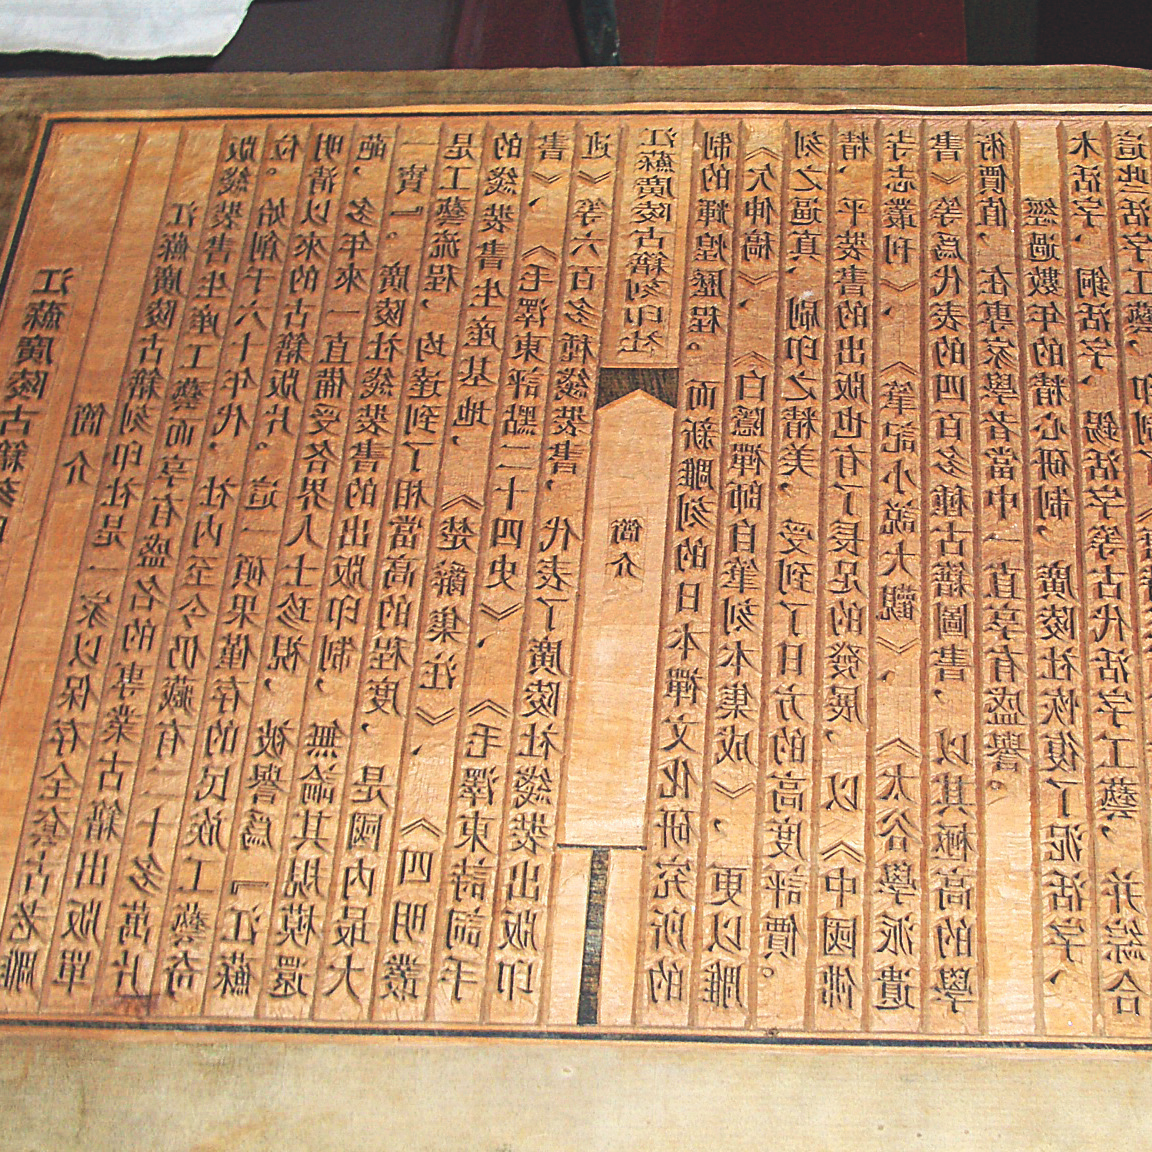 江蘇廣陵古籍刻印
簡介
江蘇廣陵古籍刻印社是一家以保存全套古老雕
版綫裝書生産工藝而享有盛名的專業古籍出版單
位。始創于六十年代，社内至今仍藏有二十多萬片
明清以來的古籍版片。這一碩果僅存的民族工藝奇
葩，多年來一直備受各界人士珍視，被譽爲『江蘇
一寶』。廣陵社綫裝書的出版印制，無論其規模還
是工藝流程，均達到了相當高的程度，是國内最大
的綫裝書生産基地，《楚辭集注》、《四明叢
書》、《毛澤東評點二十四史》、《毛澤東詩詞手
迹》等六百多種綫裝書，代表了廣陵社綫裝出版印
江蘇廣陵古籍刻印社
簡介
制的輝煌歷程。而新雕刻的日本禪文化研究所的
《欠伸稿》、《白隱禪師自筆刻本集成》，更以雕
刻之逼真、刷印之精美，受到了日方的高度評價。
精、平裝書的出版也有了長足的發展，以《中國佛
寺志叢刊》、《筆記小説大觀》、《太谷學派遺
書》等爲代表的四百多種古籍圖書，以其極高的學
術價值，在專家學者當中一直享有盛譽。
經過數年的精心研制，廣陵社恢復了泥活字、
木活字、銅活字、錫活字等古代活字工藝，并綜合
這些活字工藝，印制了